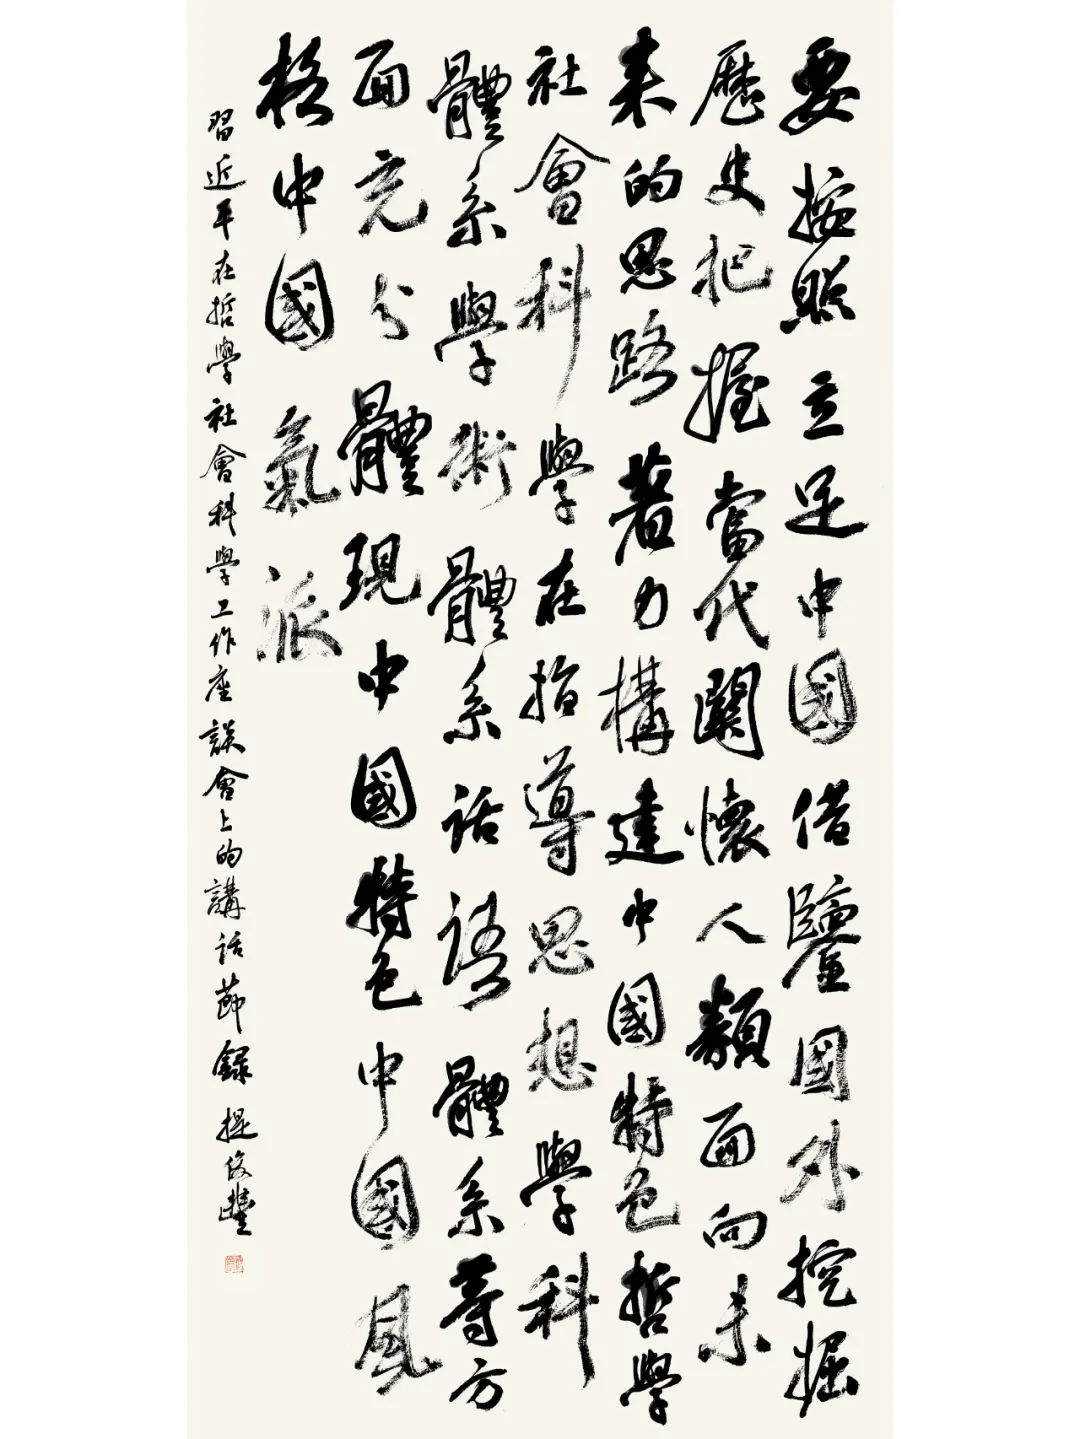 要按照立足中國借鑒國外挖掘
歷史把握當代關懷人類面向未
来的思路著力構建中國特色哲學
社會科學在指導思想學科
體系學術體系話語體系等方
面充分體現中國特色中國風
格中國氣派
習近平在哲學社會科學工作座談會上的講話節録 提俊豐